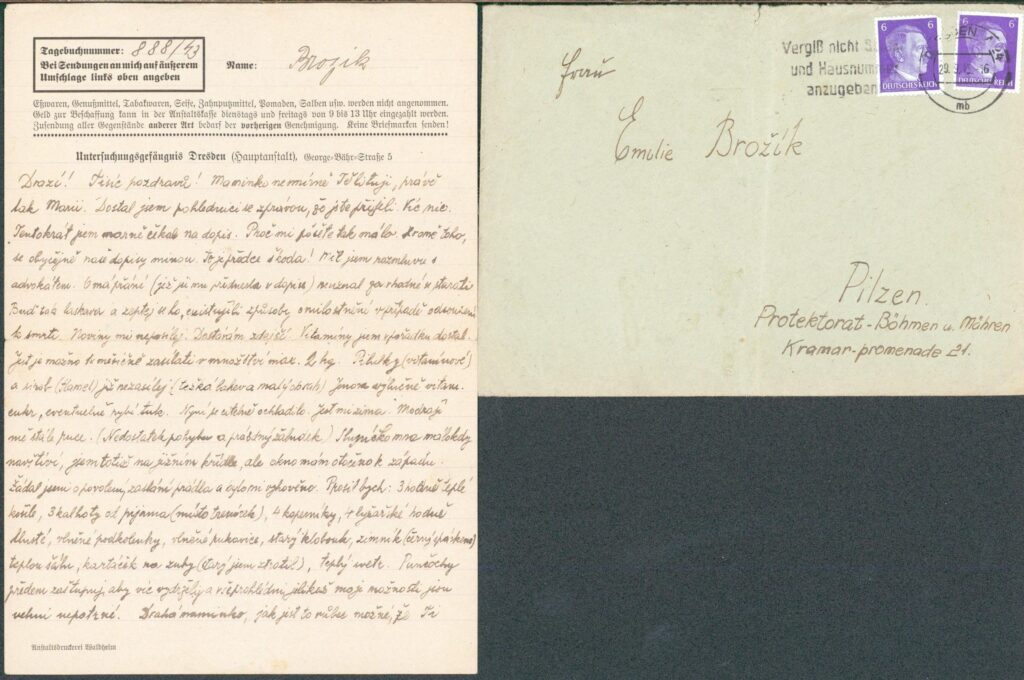 Tagebuchnummer: 888/43
Bei Sendungen an mich auf äußerem
Umschlage links oben angeben
Name: Brozik
Eßwaren, Genußmittel, Tabakwaren, Seife, Zahnputzmittel, Pomaden, Salben usw. werden nicht angenommen.
Geld zur Beschaffung kann in der Anstaltskasse dienstags und freitags von 9 bis 13 Uhr eingezahlt werden.
Zusendung aller Gegenstände anderer Art bedarf der vorherigen Genehmigung. Keine Briefmarken senden!
Untersuchungsgefängnis Dresden (Hauptanstalt), George-Bähr-Straße 5
Drazí! Tisíc pozdravů! Maminko nesmírně Tě lituji, právě
tak Marii. Dostal jsem pohlednici se zprávou, že jste přijeli. Víc nic.
Tentokrát jsem marně čekal na dopis. Proč mi píšete tak málo. Kromě toho,
se obyčejně naše dopisy minou. To je přece škoda! Měl jsem rozmluvu s
advokátem. O má přání (již jsi mu přednesla v dopise) neuznal za vhodné se starati
Buď tak laskava a zeptej se ho, existují-li způsoby omilostnění v případě odsouzení
k smrti. Noviny mi neposílej. Dostávám zdejší. Vitaminy jsem v pořádku dostal.
Jest je možno 1x měsíčně zasílati v množství max. 2 kg. Pilulky (vitaminové)
a sirob již nezasílej (těžká lahev a malý obsah) Jenom výlučně vitam.
cukr, eventuelně rybí tuk. Nyní se citelně ochladilo. Jest mi zima. Modrají
mé stále ruce. (Nedostatek pohybu a prázdný žaludek) Sluníčko mne málokdy
navštíví, jsem totiž na jižním křídle, ale okno mám otočeno k západu.
Žádal jsem o povolení zaslání prádla a bylo mi vyhověno. Prosil bych: 3 hodně teplé
košile, 3 kalhoty od pyjama (místo trenýrek), 4 kapesníky, 4 lyžařské hodně
tlusté, vlněné podkolenky, vlněné rukavice, starý klobouk, zimník (černý
teplou šálu, kartáček na zuby (starý jsem ztratil), teplý svetr. Punčochy
předem zaštupuj, aby víc vydržely a vše prohlédni, jelikož moje možnosti jsou
velmi nepatrné. Drahá maminko, jak jest to vůbec možné, že Ti
Anstaltsdruckerei Waldheim
Vergiß nicht
und Hausnumm
anzugeben
29.9.
mb
6
6
DEUTSCHES REICH
6
Frau
Emilie Brožik
Pilzen.
Protektorat-Böhmen u. Mähren
Kramar-promenade 21.